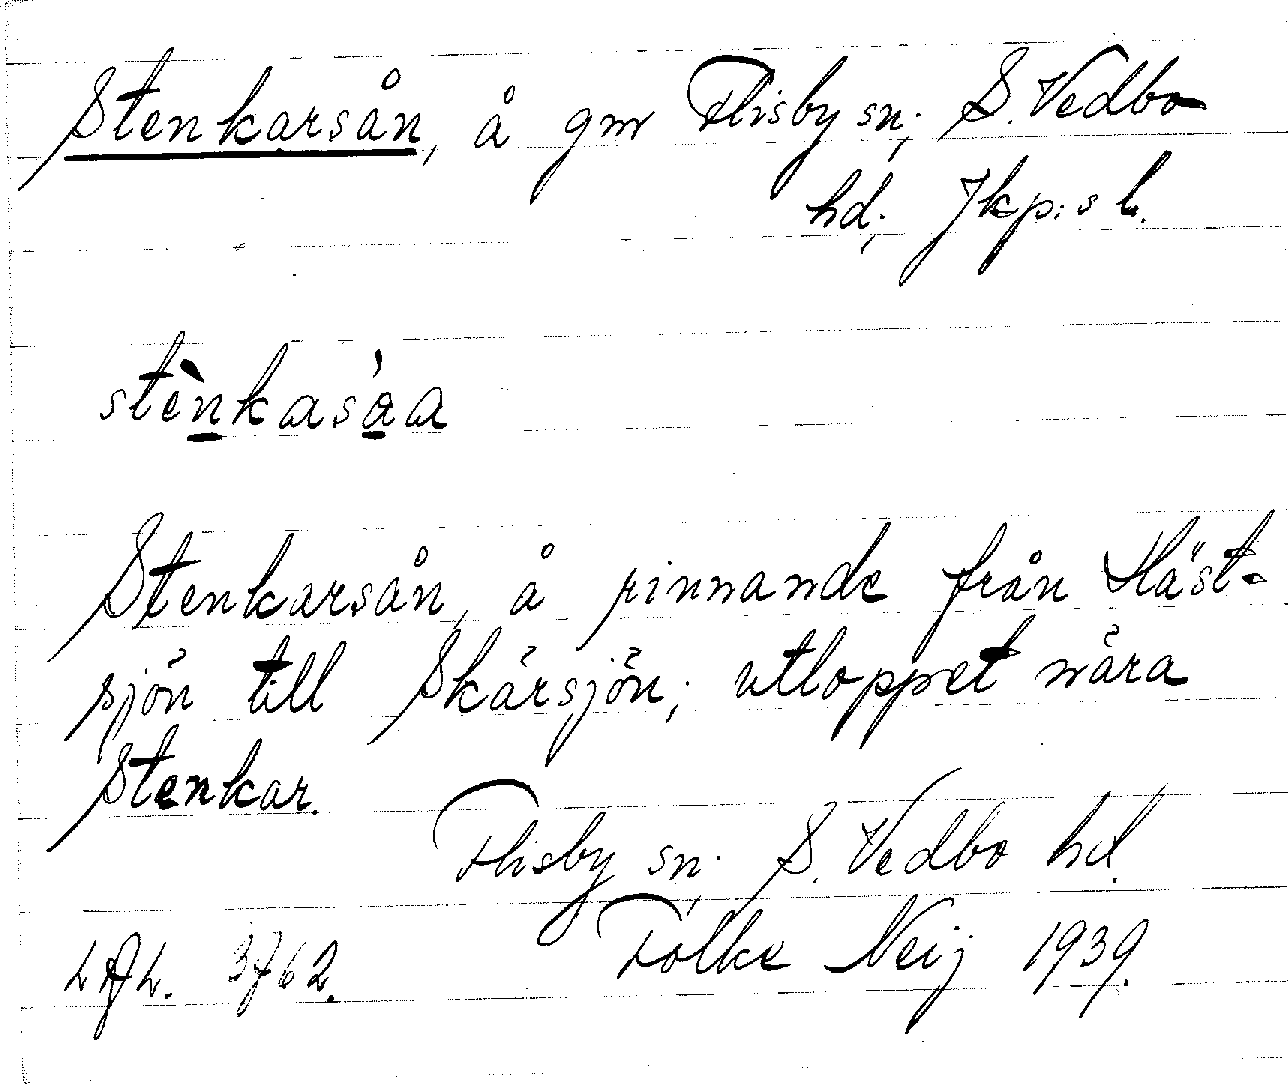 Stenkarsån, å gm Flisby sn; S. Vedbo
hd; Jkp:s l.
stènkasåa
Stenkarsån, å rinnande från Häst-
sjön till Skärsjön; utloppet nära
Stenkar.
Flisby sn; S. Vedbo hd.
3762. Folke Neij 1939.